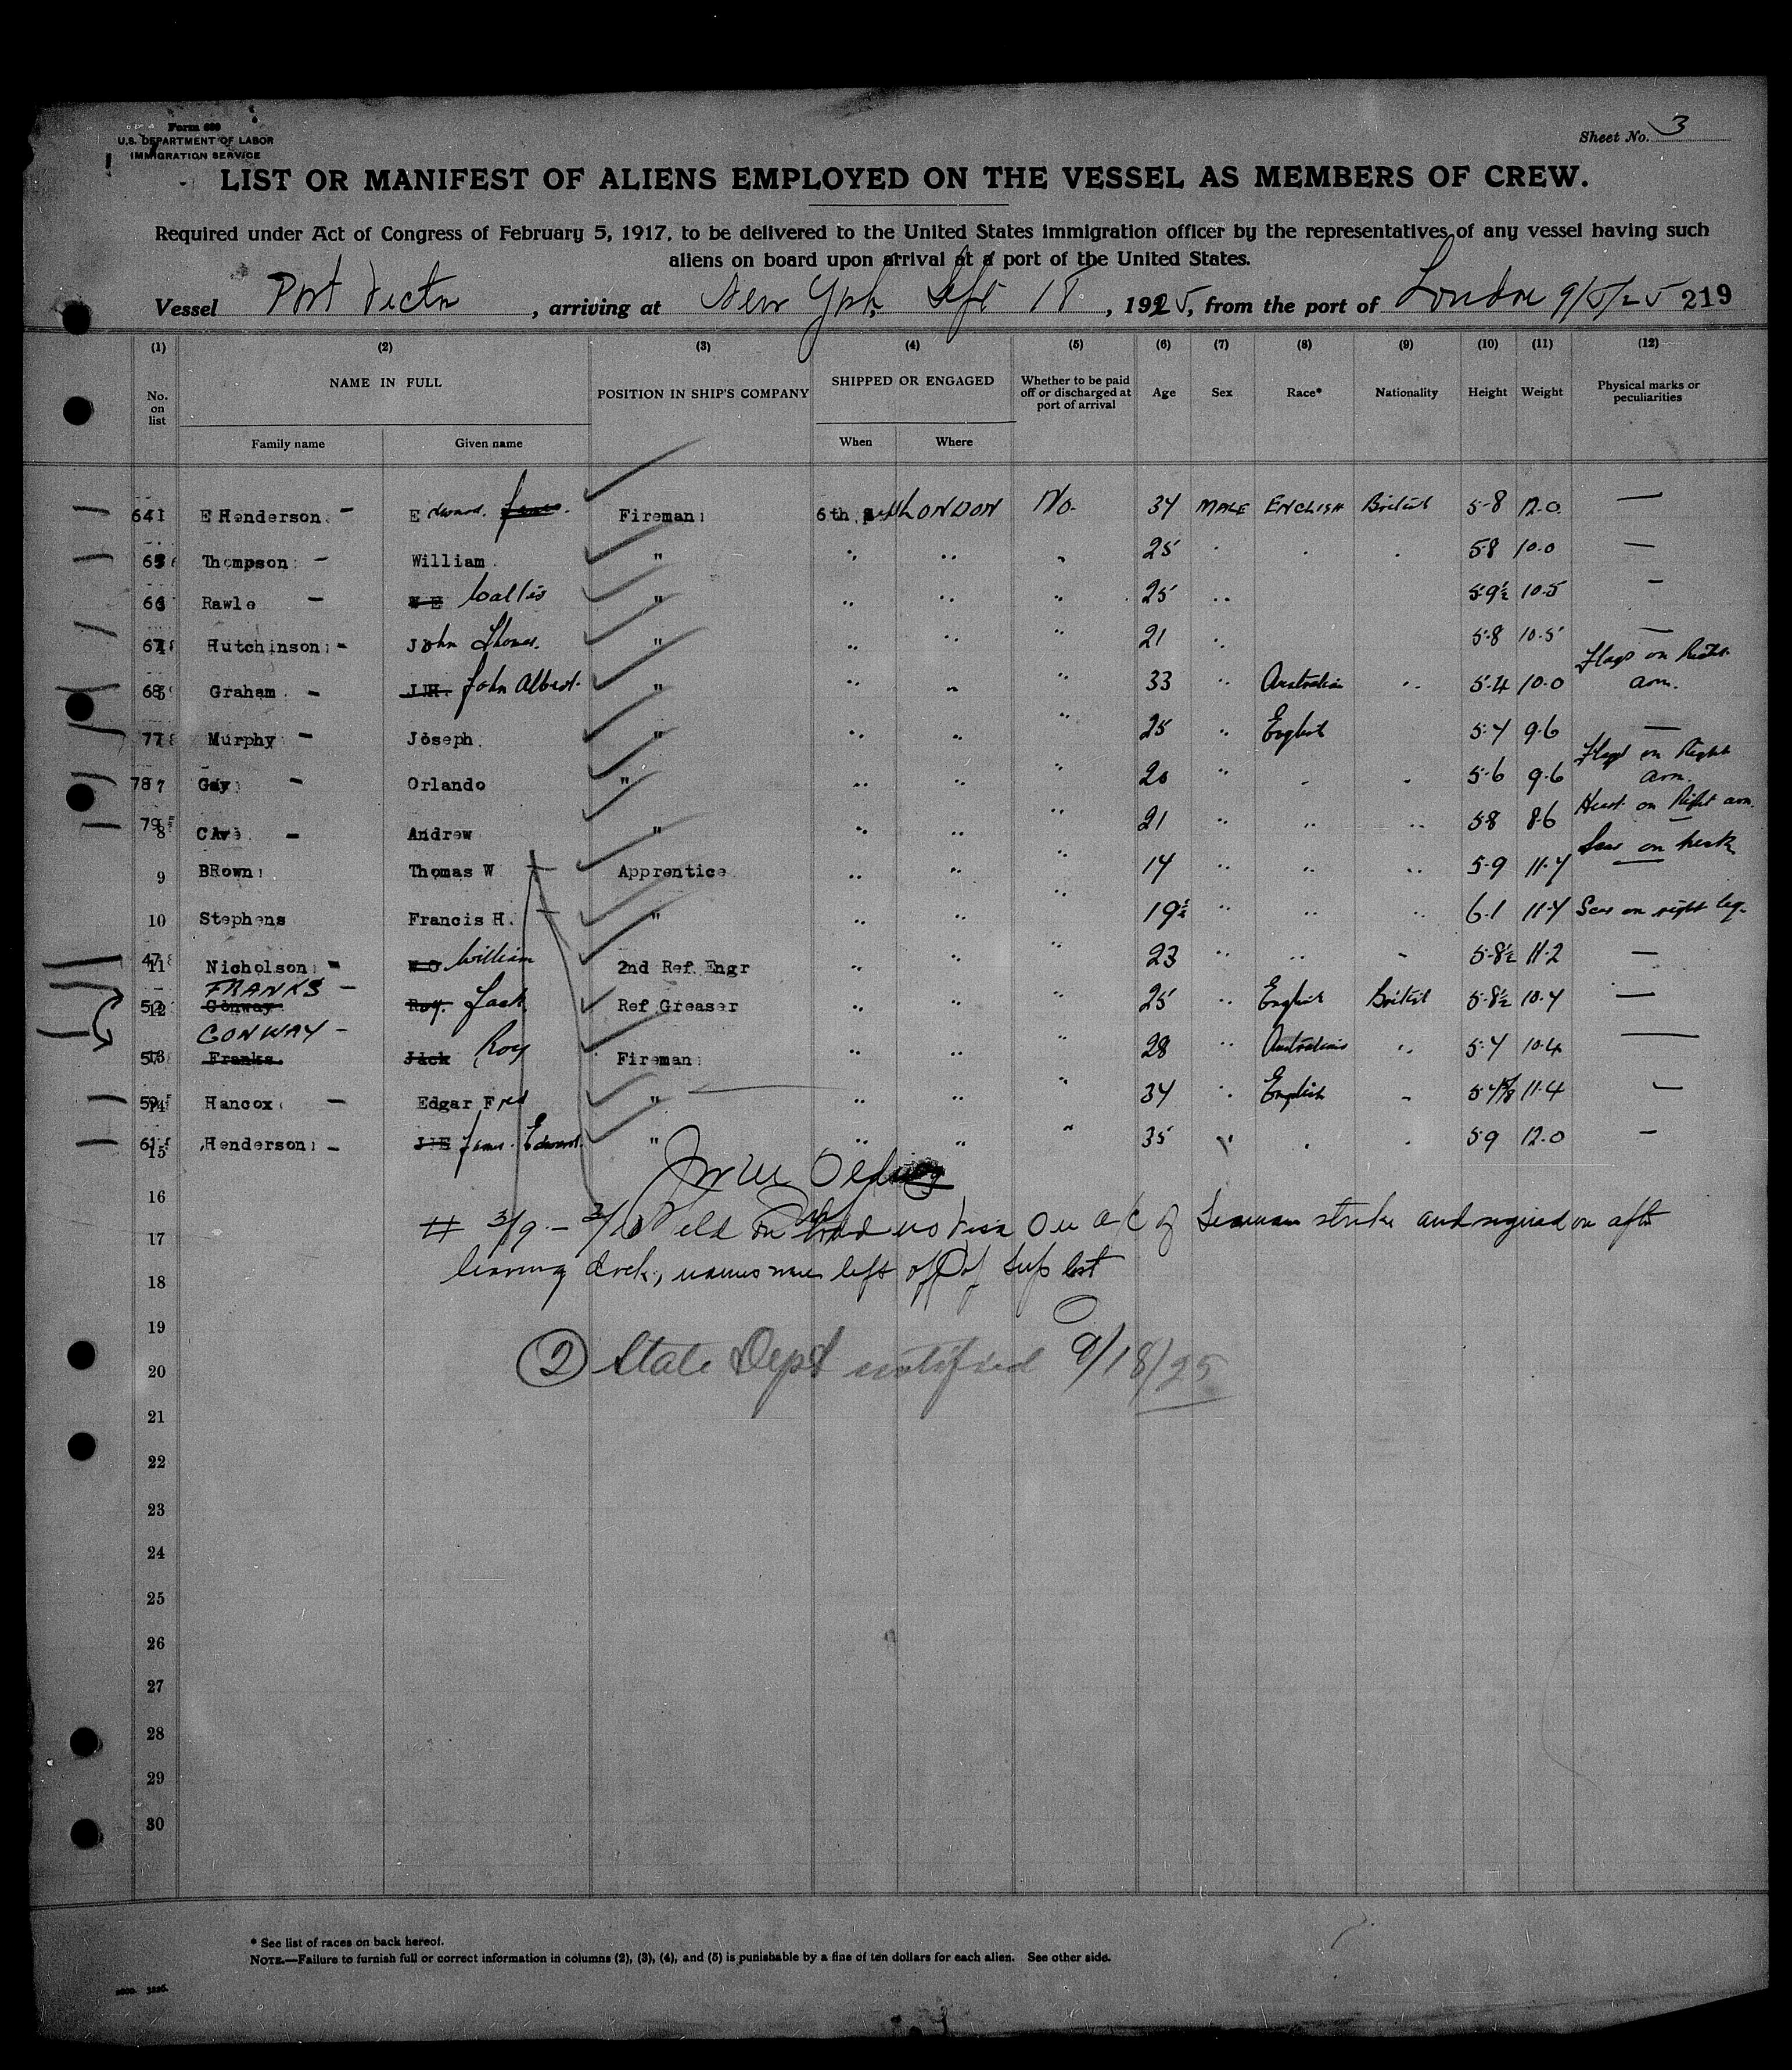 Form 680
U.S. DEPARTMENT OF LABOR
IMMIGRATION SERVICE
Sheet No. 3
LIST OR MANIFEST OF ALIENS EMPLOYED ON THE VESSEL AS MEMBERS OF CREW.
Required under Act of Congress of February 5, 1917, to be delivered to the United States immigration officer by the representatives of any vessel having such
aliens on board upon arrival at a port of the United States.
Vessel Port Victor, arriving at New York, Sept 18, 1925, from the port of London 9/5/25 219
(1) (2) (3) (4) (5) (6) (7) (8) (9) (10) (11) (12)
No. on list NAME IN FULL POSITION IN SHIP'S COMPANY SHIPPED OR ENGAGED Whether to be paid off or discharged at port of arrival Age Sex Race* Nationality Height Weight Physical marks or peculiarities
Family name Given name When Where
64 1 E Henderson - Edward James. Fireman 6th LONDON No. 34 MALE ENGLISH British 5-8 12.0 —
65 Thompson - William " " " " 25 " " " 5-8 10.0 —
66 Rawle - W E Wallis " " " " 25 " 5-9½ 10-5 —
67 Hutchinson - John Thomas. " " " " 21 " 5-8 10-5 —
68 5 Graham - J.H. John Albert. " " " " 33 " Australian " 5-4 10-0 Flags on Right arm.
77 Murphy - Joseph " " " " 25 " English 5-7 9-6 —
78 7 Gay - Orlando " " " " 20 " " " 5-6 9-6 Flags on Right arm.
79 8 CAve - Andrew " " " " 21 " " " 5-8 8-6 Heart on Right arm
9 BRown Thomas W Apprentice " " " 14 " " " 5-9 11-7 Scar on neck
10 Stephens Francis H. " " " " 19½ " " " 6-1 11-7 Scar on right leg.
47 11 Nicholson - W O William 2nd Ref. Engr " " " 23 " " " 5-8½ 11-2 —
FRANKS -
52 12 Conway Roy. Jack Ref Greaser " " " 25 " English British 5-8½ 10-7 —
CONWAY -
57 13 Franks. Jack Roy Fireman " " " 28 " Australian " 5-7 10-4 —
59 14 Hancox - Edgar Fred " " " " 34 " English " 11-4 —
61 15 Henderson - J E James Edward. " " " " 35 " " " 5-9 12-0 —
16
17 # 3/9 - 3/10 Held had no visa on a/c of Seaman strike and signed on after
18 leaving dock, names were left off of list
19
20 (2) State Dept notified 9/18/25
21
22
23
24
25
26
27
28
29
30
* See list of races on back hereof.
NOTE.—Failure to furnish full or correct information in columns (2), (3), (4), and (5) is punishable by a fine of ten dollars for each alien. See other side.